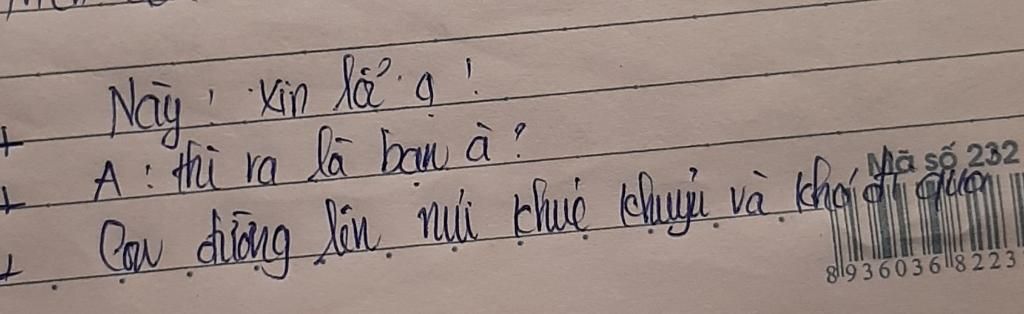 Này! Xin lỗi ạ!
A: thì ra là bạn à?
Con đường lên núi khúc khuỷu và khó đi
Mã số 232
8 936036 8223